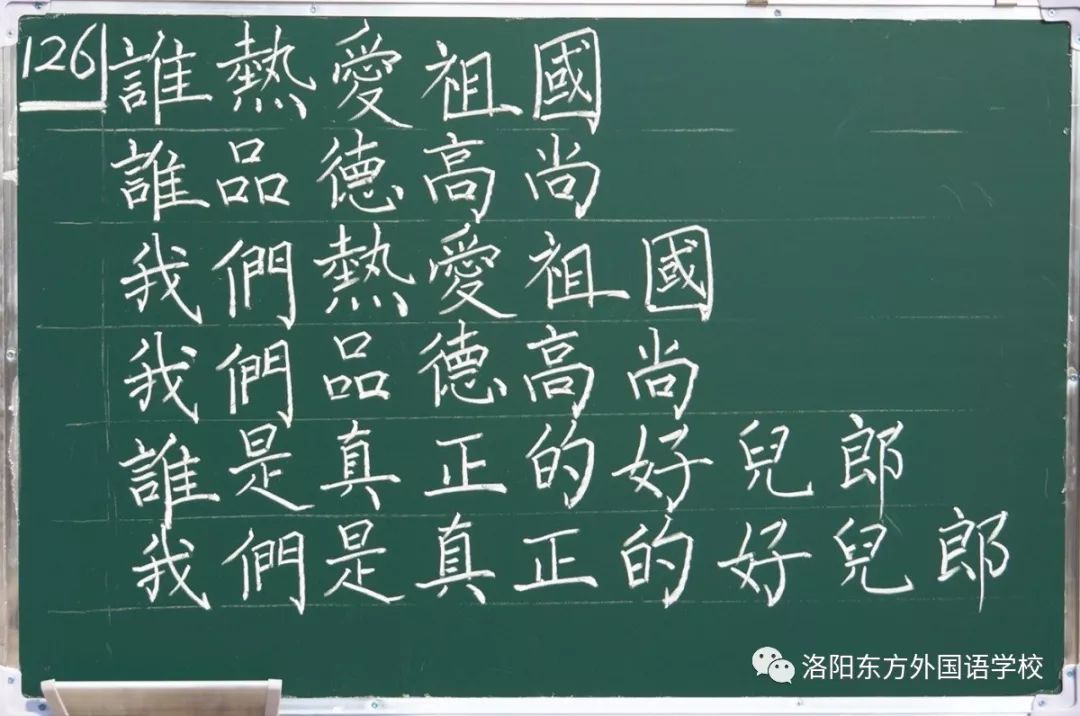 126
誰熱愛祖國
誰品德高尚
我們熱愛祖國
我們品德高尚
誰是真正的好兒郎
我們是真正的好兒郎
洛阳东方外国语学校